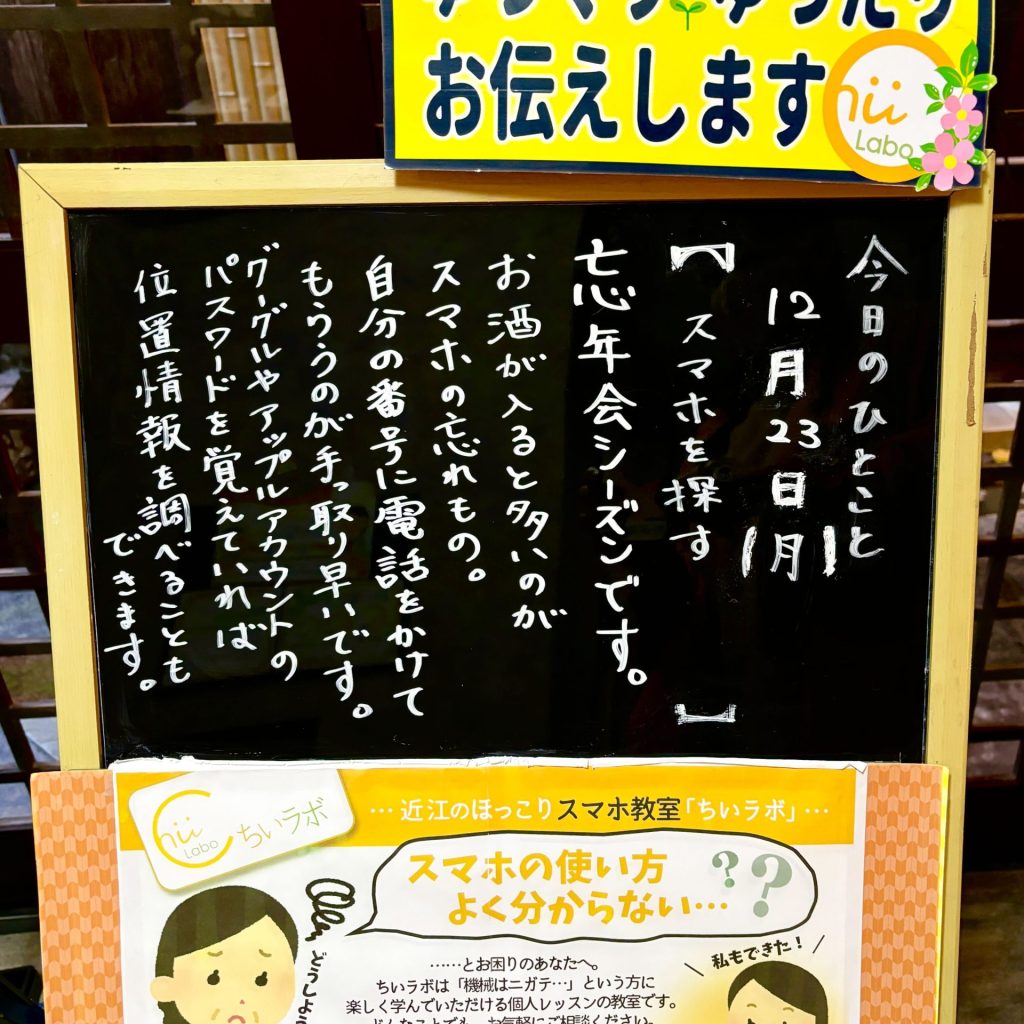 お伝えします
Chii
Labo
今日のひとこと
12月23日(月)
【スマホを探す】
忘年会シーズンです。
お酒が入ると多いのが
スマホの忘れもの。
自分の番号に電話をかけて
もらうのが手っ取り早いです。
グーグルやアップルアカウントの
パスワードを覚えていれば
位置情報を調べることも
できます。
Chii
Labo
ちいラボ
…近江のほっこりスマホ教室「ちいラボ」…
スマホの使い方
よく分からない…
??
……とお困りのあなたへ。
ちいラボは「機械はニガテ…」という方に
楽しく学んでいただける個人レッスンの教室です。
どんなことでも、お気軽にご相談ください。
どうしよ
私もできた!